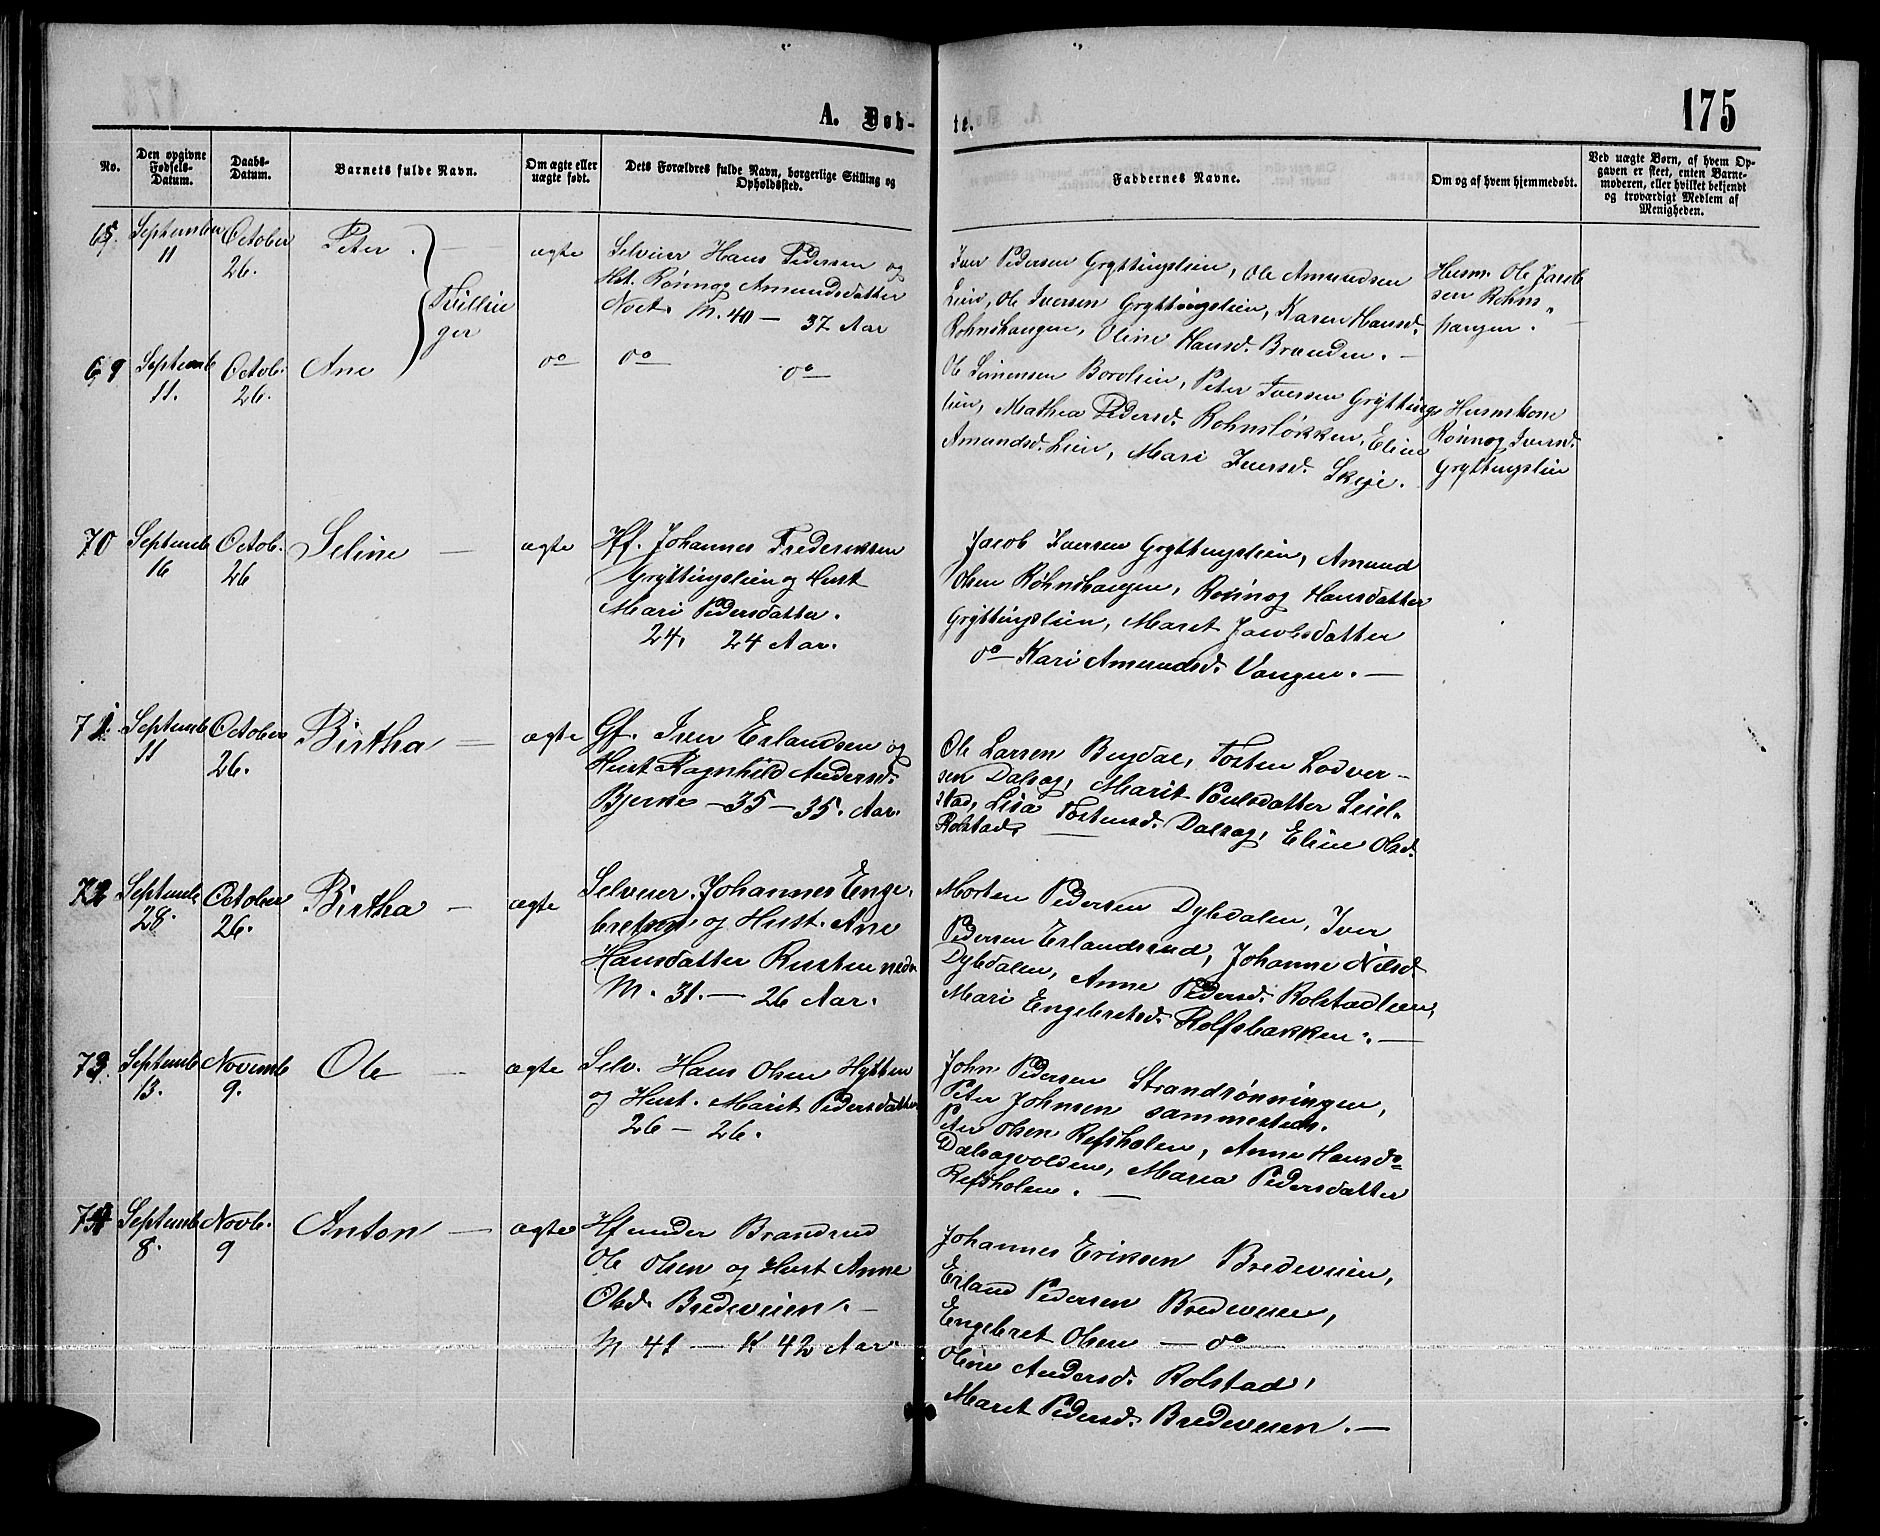 175
A. Døb-
te.
No.
Den opgivne
Fødsels-
Datum.
Daabs-
Datum.
Barnets fulde Navn.
Om ægte eller
uægte født.
Dets Forældres fulde Navn, borgerlige Stilling og
Opholdssted.
Faddernes Navne.
Om og af hvem hjemmedøbt.
Ved uægte Børn, af hvem Op-
gaven er skeet, enten Barne-
moderen, eller hvilket bekjendt
og troværdigt Medlem af
Menigheden.
September
11
October
26.
Peter
Tvillin
ger
ægte
Selveier Hans Pedersen og
Hst. Rønnog Amundsdatter
M. 40 — 37 Aar
Iver Pedersen Gryttingslien, Ole Amundsen
Lien, Ole Iversen Gryttingslien, Karen Hansd.
Rohnshaugen, Oline Hansd. Branden. —
Husm. Ole Jacob
sen Rohns
haugen.
69
Septemb
11.
Octob.
26.
Ane
do
do
do
Ole Simensen Borolien, Peter Iversen Gryttings
lien, Mathea Pedersd. Rohnsløkken, Eline
Amundsd. Lien, Mari Iversd. Skeje.
Husmkone
Rønnog Iversd.
Gryttingslien
70
Septemb
16
Octob.
26
Seline —
ægte
Hf. Johannes Frederiksen
Gryttingslien og Hust
Mari Pedersdatter.
24, 24 Aar.
Jacob Iversen Gryttingslien, Amund
Olsen Rohnshaugen, Rønnog Hansdatter
Gryttingslien, Maret Jacobsdatter
do — Kari Amundsd. Vangen. —
71
Septemb
11
October
26.
Birtha —
ægte
Gf. Iver Erlandsen og
Hust Ragnhild Andersd.
Bjerke — 35 — 35. Aar.
Ole Larsen Bugdal, Tosten Lodver-
sen Dalsog, Marit Poulsdatter Liel-
stad, Lisa Tostensd. Dalsog, Eline Olsd.
Rolstad.
72
Septemb
28.
October
26.
Birtha —
ægte
Selveier Johannes Enge.
bretsen og Hust. Ane
Hansdatter Rusten nedr
M. 31. — 26 Aar.
Morten Pedersen Dybdalen, Iver
Pedersen Erlandsrud, Johanne Nilsd
Dybdalen, Anne Pedersd. Rolstadlien,
Mari Engebretsd. Rolfsbakken. —
73
Septemb
13.
Novemb
9.
Ole —
ægte
Selv. Hans Olsen Hytten
og Hust. Marit Pedersdatter
26 — 26.
John Pedersen Strandrønningen,
Peter Johnsen sammesteds.
Peter Olsen Refsholen, Anne Hansd.
Dalsogvolden, Maria Pedersdatter
Refsholen. —
74
Septemb
8.
Novb.
9
Anton —
ægte
Hf under Brandrud
Ole Olsen og Hust Anne
Olsd. Bredeveien. —
M 41 — K 42 Aar
Johannes Eriksen Bredeveien,
Erland Pedersen Bredeveien,
Engebret Olsen — do
Oline Andersd. Rolstad,
Maret Pedersd. Bredeveien. —